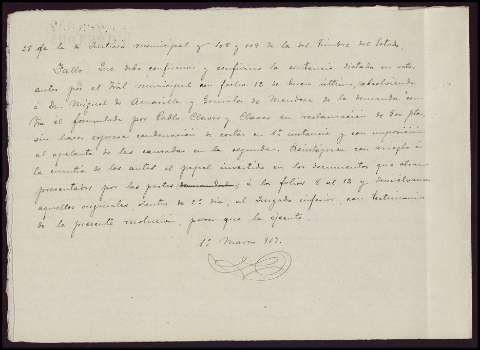 28 de la de Justicia municipal y 108 y 109 de la del Timbre del Estado.
Fallo: Que debo confirmar y confirmo la sentencia dictada en estos
autos por el Tral municipal con fecha 12 de Enero último, absolviendo
á Dn Miguel de Amarilla y González de Mendoza de la demanda con-
tra él formulada por Pablo Claros y Claros en reclamación de ptas,
sin hacer expresa condenación de costas en 1ª instancia y con imposición
al apelante de las causadas en la segunda. Reintégrese con arreglo á
la cuantía de los autos el papel invertido en los documentos que obran
presentados por las partes á los folios 8 al 12 y devuélvanse
aquellos originales dentro de 2º día, al Juzgado inferior, con testimonio
de la presente resolución, para que la ejecute.
1º Marzo 913.